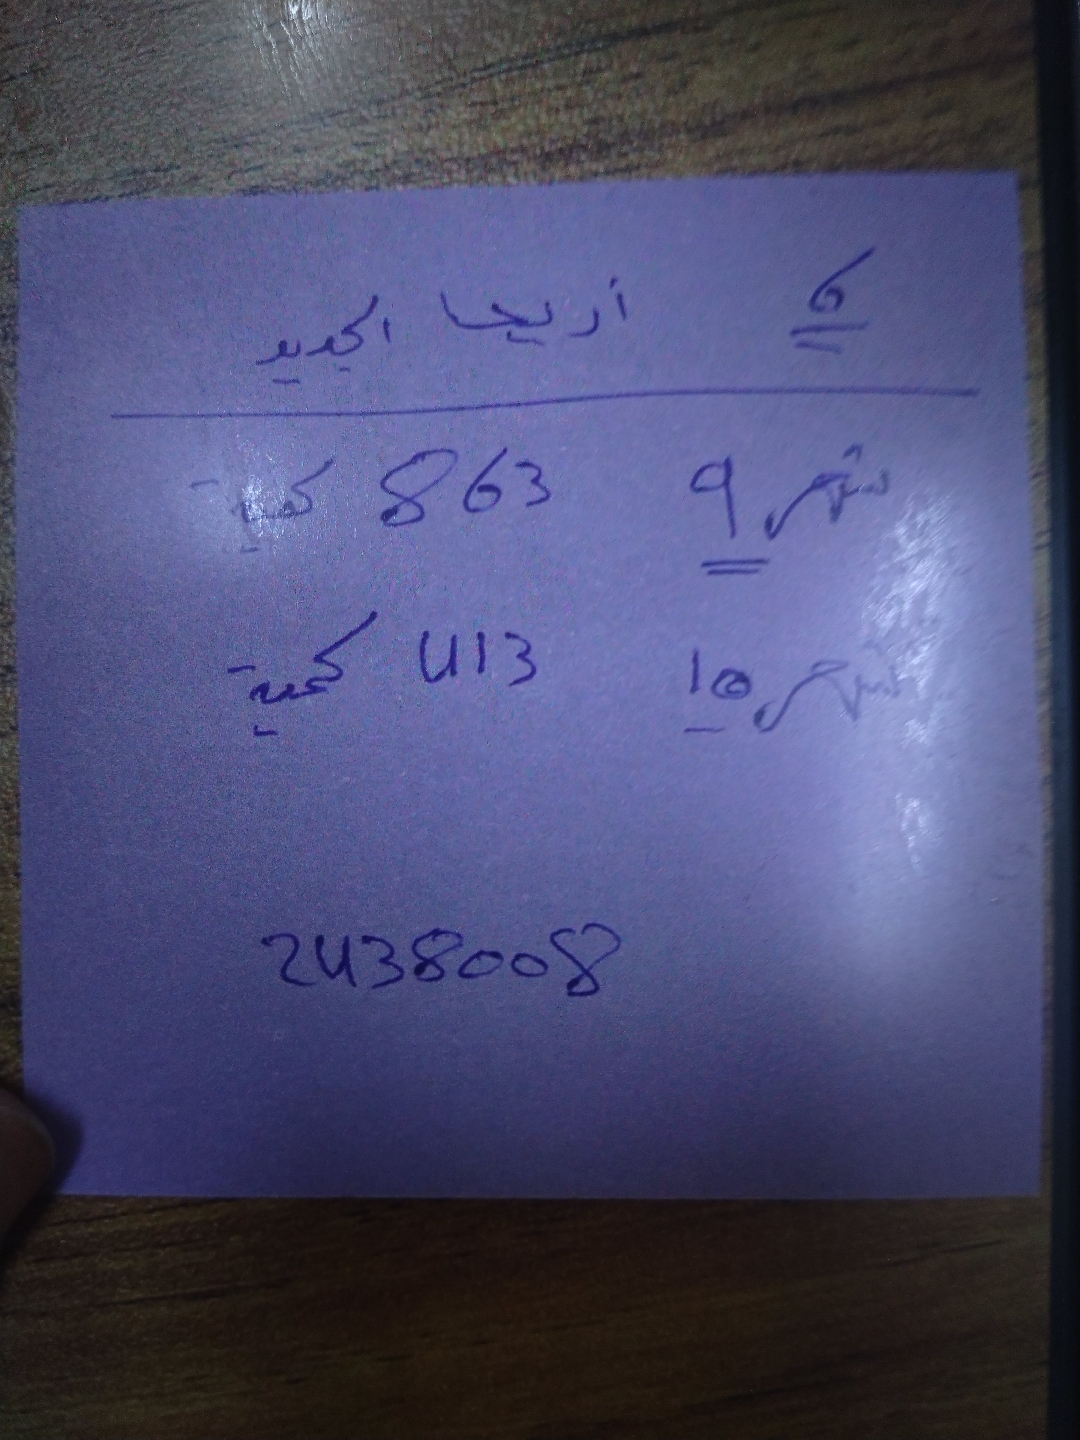 6 أريحا الجديد
شهر 9 863 كمية
شهر 10 413 كمية
2438008